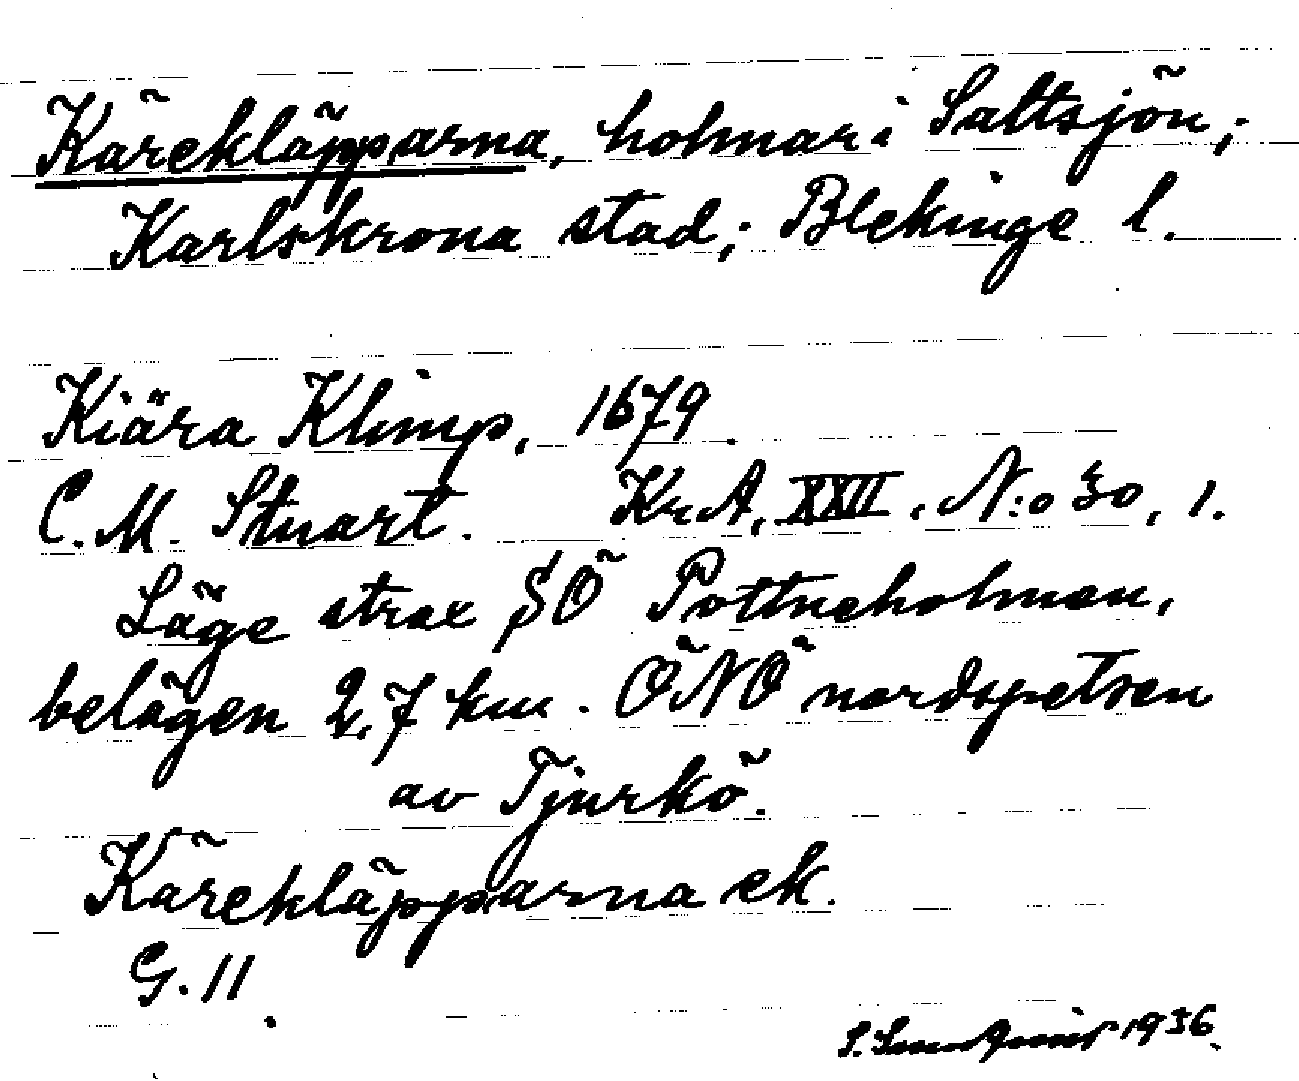 Kärekläpparna, holmar i Saltsjön;
Karlskrona stad; Blekinge l.
Kiära Klimp, 1679.
C. M. Stuart. Kr.A, XXII, N:o 30, 1.
Läge strax SÖ Pottneholmen,
belägen 2,7 km. ÖNÖ nordspetsen
av Tjurkö.
Kärekläpparna ek.
G. 11.
1936.